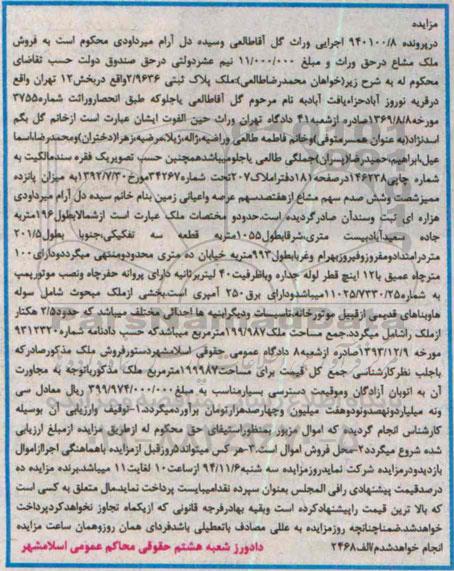 مزایده
درپرونده ۹۴۰۱۰۰/۸ اجرایی وراث گل آقاطالعی وسیده دل آرام میرداودی محکوم است به فروش
ملک مشاع درحق وراث و مبلغ ۱۱/۰۰۰/۰۰۰ نیم عشردولتی درحق صندوق دولت حسب تقاضای
محکوم له به شرح زیر(خواهان محمدرضاطالعی):ملک پلاک ثبتی ۲/۹۶۳۶واقع دربخش۱۲ تهران واقع
درقریه نوروز آبادحزاءیافت آبادبه نام مرحوم گل آقاطالعی یاجلوکه طبق انحصاروراثت شماره۳۷۵۵
مورخه۱۳۶۹/۸/۸صادره ازشعبه۴۱ دادگاه تهران وراث حین الفوت ایشان عبارت است ازخانم گل بگم
اسدنژاد(به عنوان همسرمتوفی)وخانم فاطمه طالعی وراضیه،ژاله،ژیلا،مرضیه،زهرا(دختران)ومحمدرضا،اسما
عیل،ابراهیم،حمیدرضا(پسران)جملگی طالعی یاجلومیباشدهمچنین حسب تصویریک فقره سندمالکیت به
شماره چاپی۱۴۶۲۳۸درصفحه۱۸۱دفتراملاک۲۰۷تحت شماره۳۴۲۶۷مورخ۱۳۹۲/۷/۳۰به میزان پانزده
ممیزشصت وشش صدم سهم مشاع ازهفتصدسهم عرصه واعیانی زمین بنام خانم سیده دل آرام میرداودی
هزاره ای ثبت وسندآن صادرگردیده است.حدودو مختصات ملک عبارت است ازشمالابطول۱۹۶متربه
جاده سعیدآبادبیست متری،شرقابطول۱۰۵۵متربه قطعه سه تفکیکی،جنوبا بطول۲۰۱/۵
متردرامتدادومفروزوفیروزبهرام وغربابطول۹۹۳متربه خیابان ده متری محدودومنتهی میگرددودارای۱۰۰
مترچاه عمیق با۱۲ اینچ قطر لوله جداره وباظرفیت۴۰ لیتربرثانیه دارای پروانه حفرچاه ونصب موتورپمپ
به شماره۱۱۰۲۵/۷۳۳۰/۲۵میباشدودارای برق۲۵۰ آمپری است.بخشی ازملک مبحوث شامل سوله
هاوبناهای قدیمی ازقبیل موتورخانه،تاسیسات ودیگرابنیه ها احداثی مختلف میباشد که حدود۲/۵ هکتار
ازملک راشامل میگردد.جمع مساحت ملک۱۹۹/۹۸۷مترمربع میباشدکه حسب دادنامه شماره۹۳۱۲۳۲۰
مورخه ۱۳۹۳/۱۲/۹صادره ازشعبه۸ دادگاه عمومی حقوقی اسلامشهردستورفروش ملک مذکورصادرکه
باجلب نظرکارشناسی جمع کل قیمت برای مساحت۱۹۹۹۸۷مترمربع ملک مذکورباتوجه به مجاورت
آن به اتوبان آزادگان وموقعیت دسترسی بسیارمناسب به مبلغ۳۹۹/۹۷۴/۰۰۰/۰۰۰ ریال معادل سی
ونه میلیاردونهصدونودوهفت میلیون وچهارصدهزارتومان برآوردمیگردد.۱-توقیف وارزیابی آن بوسیله
کارشناس انجام گردیده که اموال مزبور بمنظوراستیفای حق محکوم له ازطریق مزایده ازمبلغ ارزیابی
شده شروع میگردد۲-محل فروش اموال است.۳-هر کس میتواند۵روزقبل ازمزایده باهماهنگی اجراازاموال
بازدیدودرمزایده شرکت نمایدروزمزایده سه شنبه۹۴/۱۱/۶ ازساعت۱۰ لغایت۱۱ میباشد.برنده مزایده ده
درصدقیمت پیشنهادی رافی المجلس بعنوان سپرده نقدامیبایست پرداخت نماید.مال متعلق به کسی است
که بالا ترین قیمت راپیشنهادکرده است وبقیه بهادرفرجه قانونی که ازیکماه تجاوز نخواهدکردپرداخت
خواهدشد.ضمناچنانچه روزمزایده به عللی مصادف باتعطیلی باشدفردای همان روزوهمان ساعت مزایده
انجام خواهدشدم/الف۲۴۶۸
دادورز شعبه هشتم حقوقی محاکم عمومی اسلامشهر